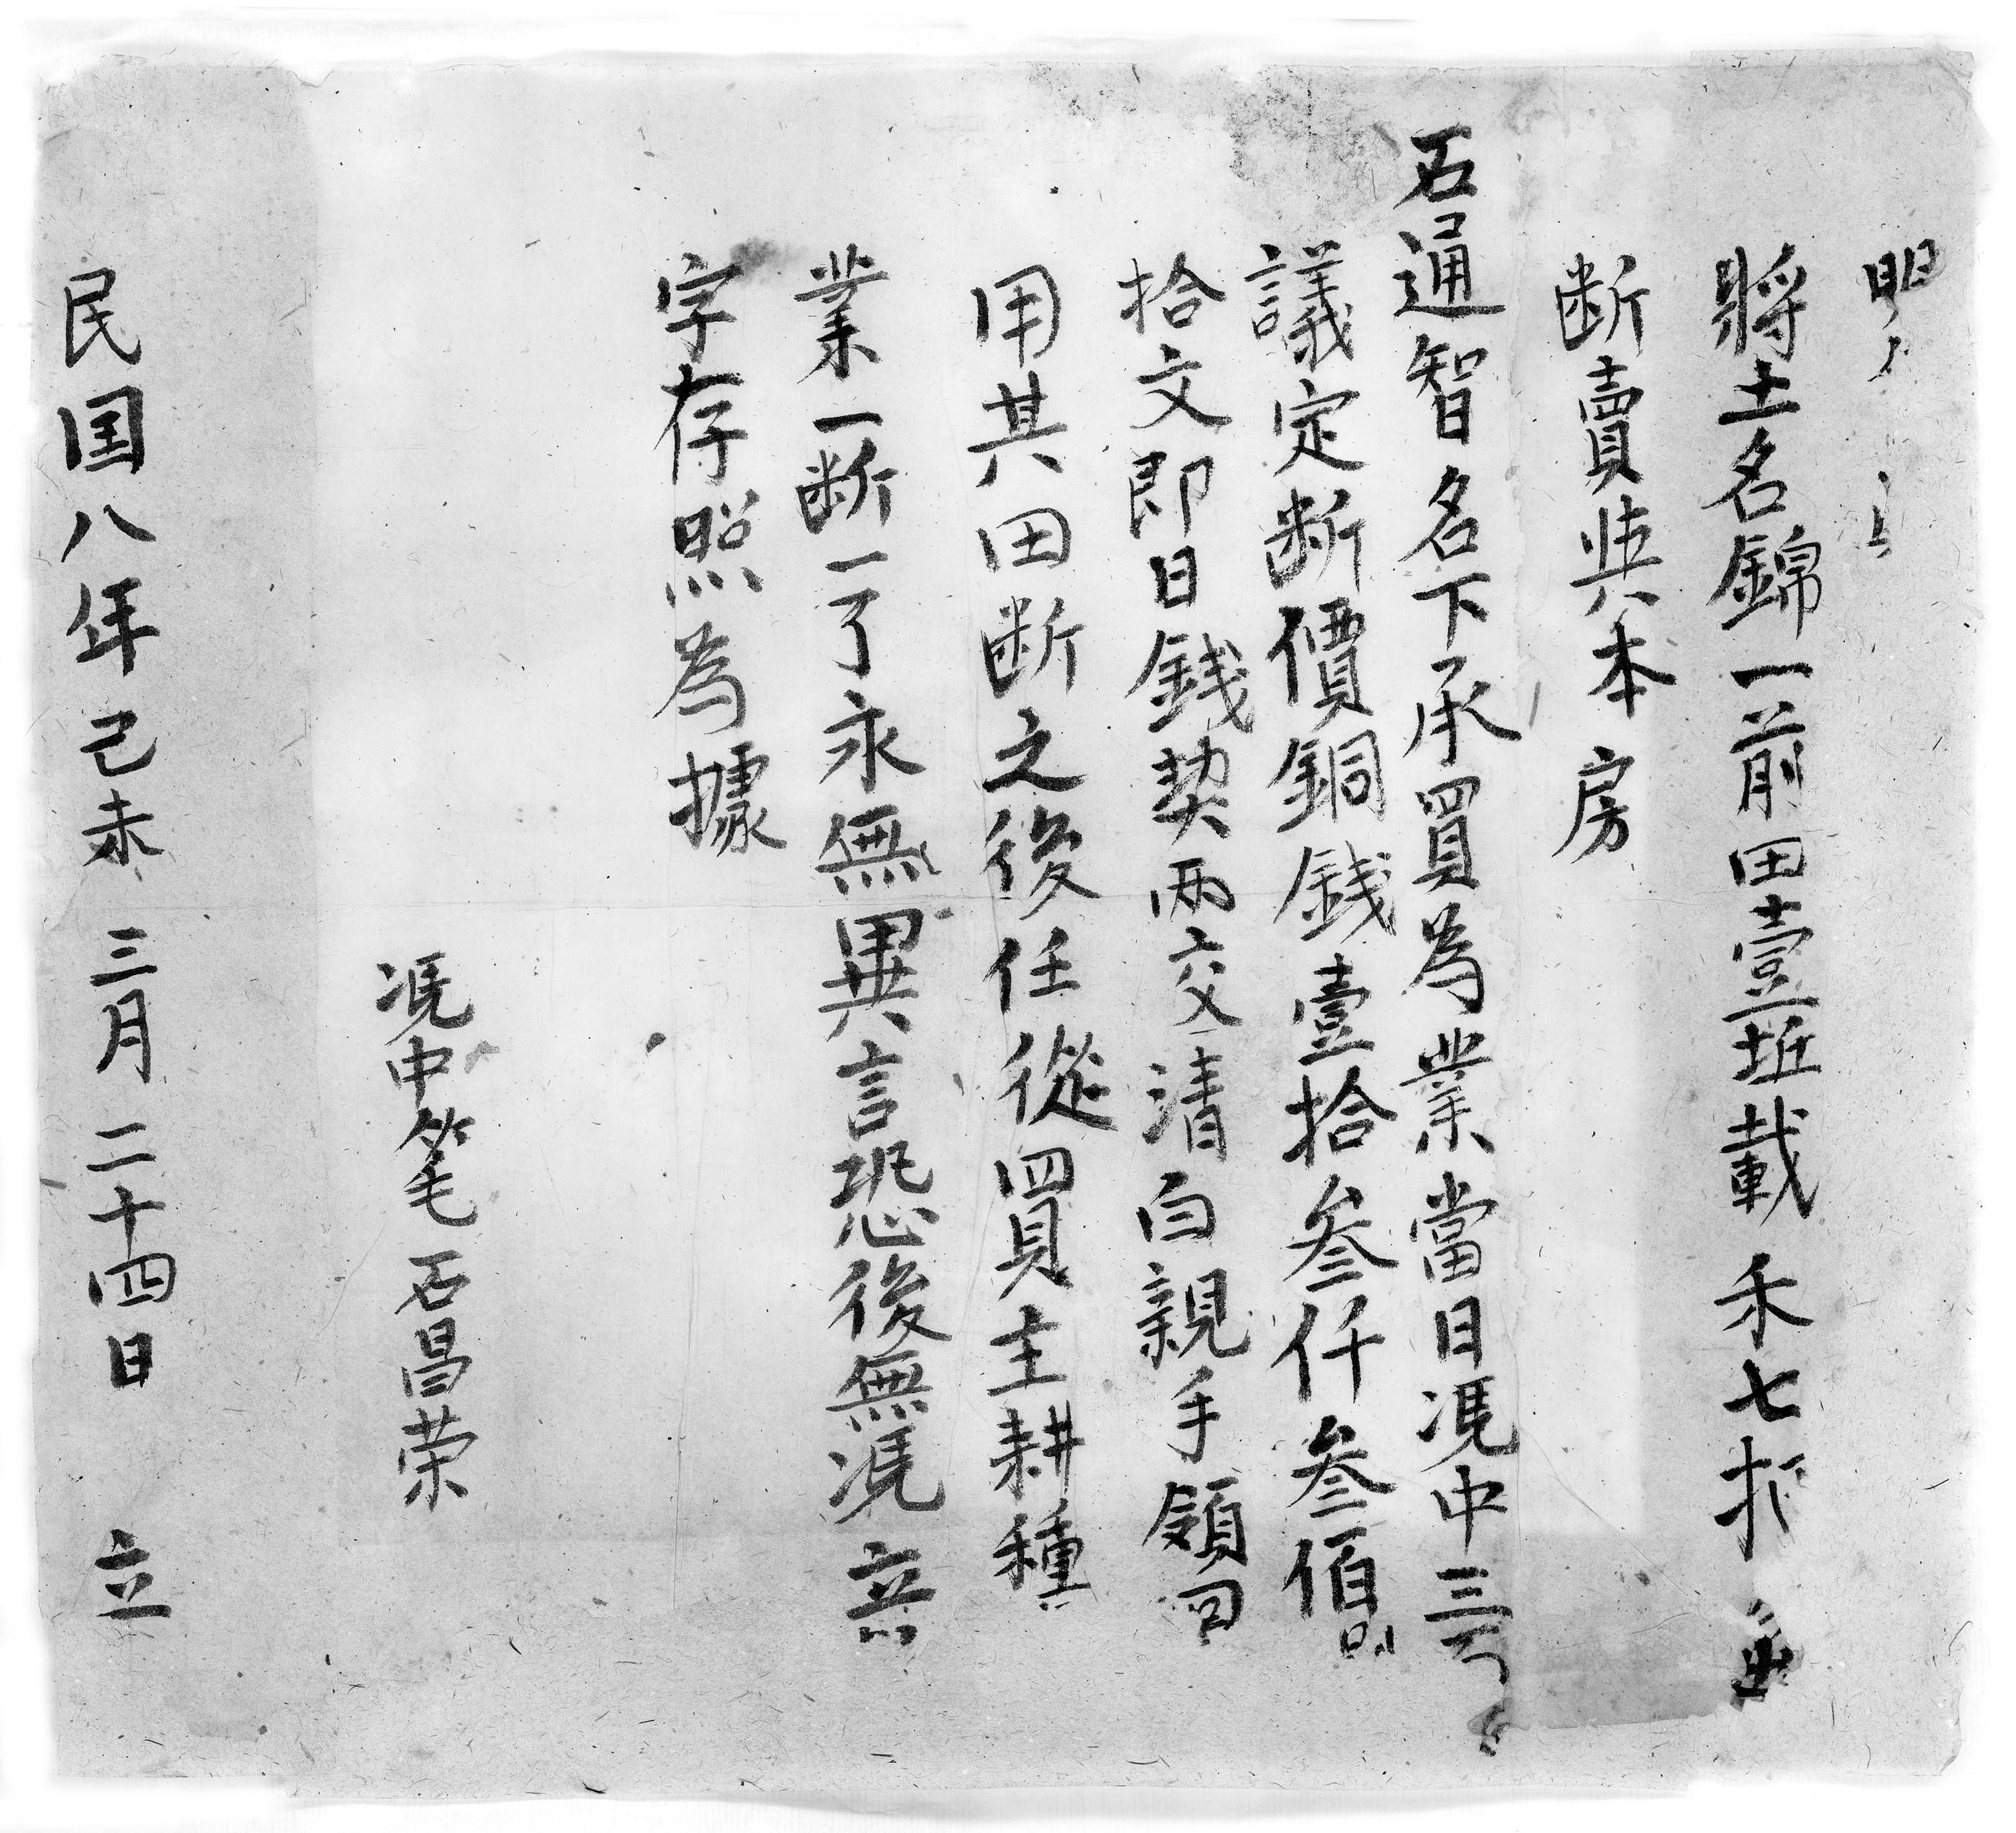 將土名錦一前田壹坵載禾七
断賣與本房
石通智名下承買為業當日馮中三
議定断價銅銭壹拾叁仟叁佰
拾文即日銭契兩交清白親手領回
用其田断之後任從買主耕種
業一断一了永無異言恐後無馮立
字存照為據
馮中筆石昌荣
民国八年己未三月二十四日立